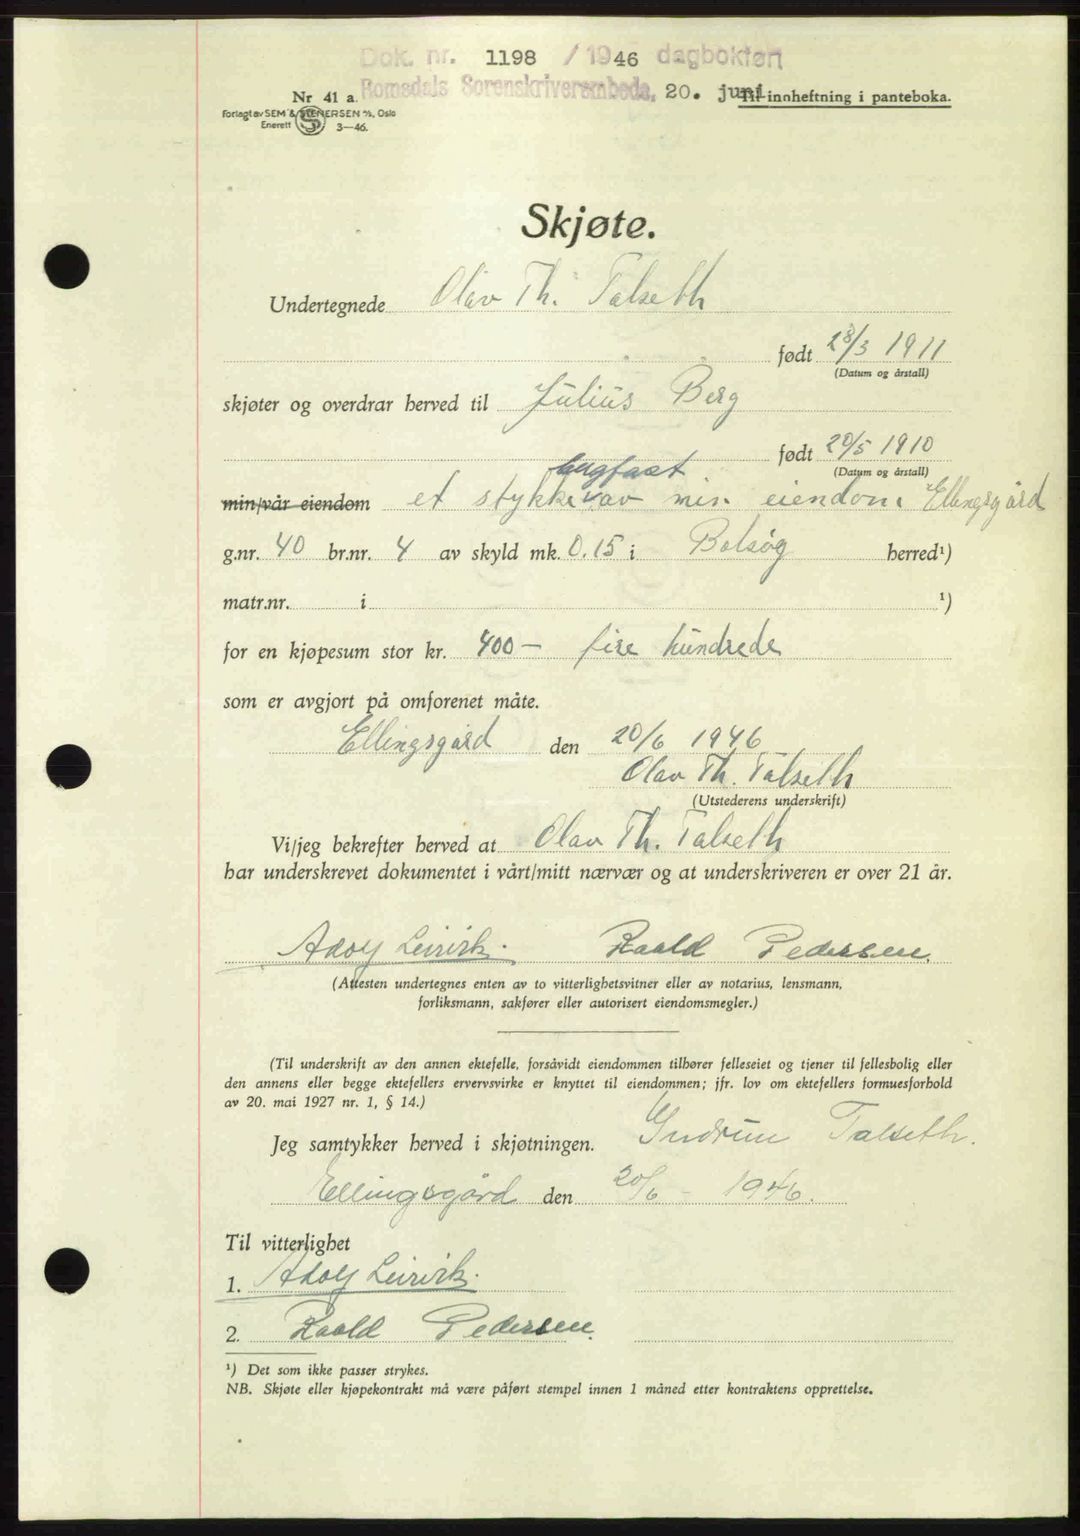 Dok. nr. 1198 / 1946 dagbokført
Romsdals Sorenskriverembede, 20. juni
Nr 41 a.
Til innheftning i panteboka.
Forlagt av SEM & STENERSEN A/S, Oslo
Enerett 3—46.
Skjøte.
Undertegnede Olav Th. Talseth
født 28/3 1911
(Datum og årstall)
skjøter og overdrar herved til Julius Berg
født 20/5 1910
(Datum og årstall)
bergfast
min/vår eiendom et stykke av min eiendom Ellingsgård
g.nr. 40 br.nr. 4 av skyld mk. 0.15 i Bolsøy herred¹)
matr.nr. i ¹)
for en kjøpesum stor kr. 400 — fire hundrede
som er avgjort på omforenet måte.
Ellingsgård den 20/6 1946
Olav Th. Talseth
(Utstederens underskrift)
Vi/jeg bekrefter herved at Olav Th. Talseth
har underskrevet dokumentet i vårt/mitt nærvær og at underskriveren er over 21 år.
Adolf Leirvik. Pedersen.
(Attesten undertegnes enten av to vitterlighetsvitner eller av notarius, lensmann,
forliksmann, sakfører eller autorisert eiendomsmegler.)
(Til underskrift av den annen ektefelle, forsåvidt eiendommen tilhører felleseiet og tjener til fellesbolig eller
den annens eller begge ektefellers ervervsvirke er knyttet til eiendommen; jfr. lov om ektefellers formuesforhold
av 20. mai 1927 nr. 1, § 14.)
Jeg samtykker herved i skjøtningen. Gudrun Talseth.
Ellingsgård den 20/6 - 1946.
Til vitterlighet
1. Adolf Leirvik.
2. Pedersen.
¹) Det som ikke passer strykes.
NB. Skjøte eller kjøpekontrakt må være påført stempel innen 1 måned etter kontraktens opprettelse.